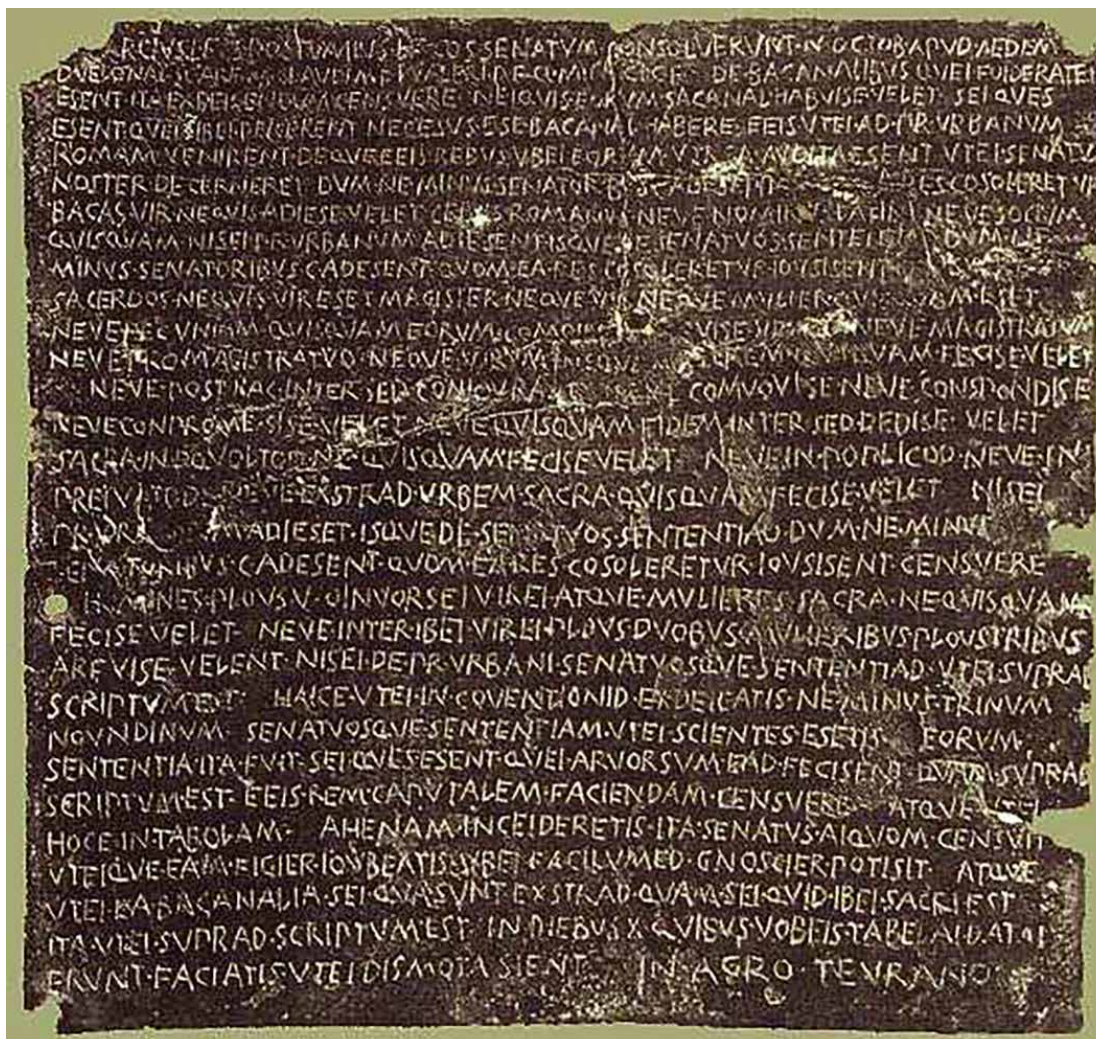 POSTVMIVS·L·F·COS SENATVM CONSOLVERVNT·N·OCTOB·APVD·AEDEM
DVELONAI SC·ARF·M· DE·BACANALIBVS·QVEI·FOIDERATEI
ESENT·ITA·EXDEICENDVM·CENSVERE NEIQVIS·EORVM·BACANAL·HABVISE·VELET SEI·QVES
ESENT·QVEI·SIBEI·DEICERENT NECESVS·ESE·BACANAL·HABERE·EEIS·VTEI·AD·PR·VRBANVM
ROMAM·VENIRENT·DEQVE·EEIS·REBVS·VBEI·EORVM ESENT·VTEI·SENATVS
NOSTER DECERNERET DVM·NE·MINVS·SENATORIBVS COSOLERETVR
BACAS·VIR·NEQVIS·ADIESE·VELET ROMANVS·NEVE·NOMINVS NEVE·SOCIVM
QVISQVAM·NISEI·PR·VRBANVM·ADIESENT·ISQVE·DE·SENATVOS·SENTENTIAD DVM·NE
MINVS·SENATORIBVS·C·ADESENT·QVOM·EA·RES·COSOLERETVR·IOVSISENT
SACERDOS·NEQVIS·VIR·ESET·MAGISTER·NEQVE·VIR·NEQVE·MVLIER·QVISQVAM·ESET
NEVE·PECVNIAM·QVISQVAM·EORVM·COMOINEM NEVE·MAGISTRATVM
NEVE·PRO·MAGISTRATVD·NEQVE·VIRVM QVISQVAM·FECISE·VELET
NEVE·POST·HAC·INTER·SED·CONIOVRASE COMVOVISE·NEVE·CONSPONDISE
NEVE·CONPROMESISE·VELET NEVE·QVISQVAM·FIDEM·INTER·SED·DEDISE·VELET
SACRA·IN·OQVOLTOD·NE·QVISQVAM·FECISE·VELET NEVE·IN·POPLICOD·NEVE·IN
PREIVATOD·NEVE·EXSTRAD·VRBEM·SACRA·QVISQVAM·FECISE·VELET NISEI
PR·VRBANVM·ADIESET·ISQVE·DE·SENATVOS·SENTENTIAD·DVM·NE·MINVS
SENATORIBVS·C·ADESENT·QVOM·EA·RES·COSOLERETVR·IOVSISENT·CENSVERE
HOMINES·PLOVS·V·OINVORSEI·VIREI·ATQVE·MVLIERES·SACRA·NE·QVISQVAM
FECISE·VELET NEVE·INTER·IBEI·VIREI·PLOVS·DVOBVS·MVLIERIBVS·PLOVS·TRIBVS
ARFVISE·VELENT·NISEI·DE·PR·VRBANI·SENATVOSQVE·SENTENTIAD·VTEI·SVPRAD
SCRIPTVM·EST HAICE·VTEI·IN·COVENTIONID·EXDEICATIS·NE·MINVS·TRINVM
NOVNDINVM SENATVOSQVE·SENTENTIAM·VTEI·SCIENTES·ESETIS EORVM
SENTENTIA·ITA·FVIT·SEI·QVES·ESENT·QVEI·ARVORSVM·EAD·FECISENT·QVAM·SVPRAD
SCRIPTVM·EST·EEIS·REM·CAPVTALEM·FACIENDAM·CENSVERE ATQVE·VTEI
HOCE·IN·TABOLAM· AHENAM·INCEIDERETIS·ITA·SENATVS·AIQVOM·CENSVIT
VTEIQVE·EAM·FIGIER·IOVBEATIS·VBEI·FACILVMED·GNOSCIER·POTISIT· ATQVE
VTEI·EA·BACANALIA·SEI·QVA·SVNT·EXSTRAD·QVAM·SEI·QVID·IBEI·SACRI·EST
ITA·VTEI·SVPRAD·SCRIPTVM·EST IN·DIEBVS·X·QVIBVS·VOBEIS·TABELAI·DATAI
ERVNT·FACIATIS·VTEI·DISMOTA·SIENT IN·AGRO·TEVRANO